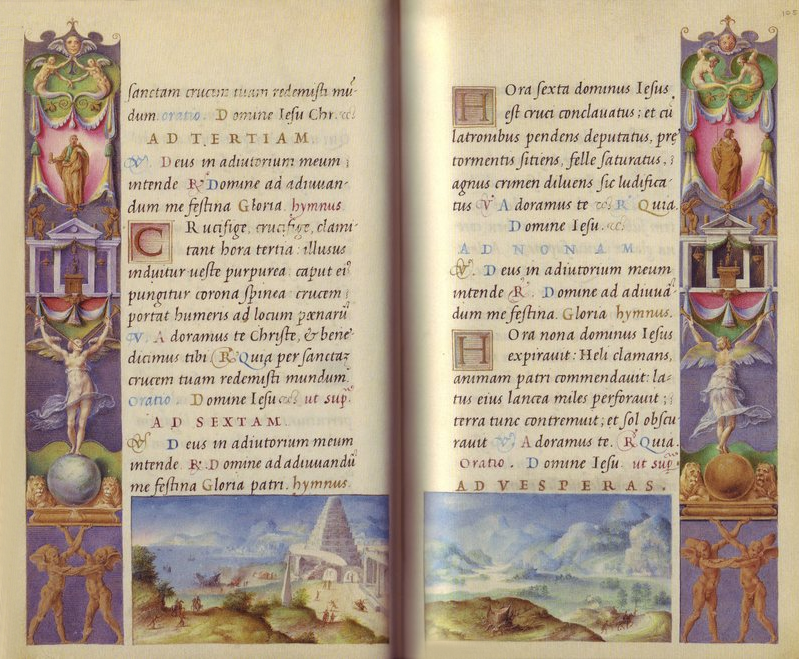 sanctam crucem tuam redemisti mu-
dum. oratio. Domine Iesu Chr. etc̃
AD TERTIAM
V. Deus in adiutorium meum ;
intende R. Domine ad adiuuan-
dum me festina Gloria. hymnus.
CRucifige, crucifige, clami
tant hora tertia: illusus
induitur ueste purpurea: caput ei9
pungitur corona spinea: crucem ;
portat humeris ad locum pœnarũ
V. Adoramus te Christe, & bene-
dicimus tibi R. Quia per sanctaʒ
crucem tuam redemisti mundum.
Oratio. Domine Iesu etc̃ ut sup.
AD SEXTAM
V. Deus in adiutorium meum
intende R. Domine ad adiuuandũ
me festina Gloria patri. hymnus.
HOra sexta dominus Iesus
est cruci conclauatus; et cũ
latronibus pendens deputatus, pre
tormentis sitiens, felle saturatus, ;
agnus crimen diluens sic ludifica-
tus V. Adoramus te etc̃ R. Quia.
Domine Iesu. etc̃
AD NONAM
V. Deus in adiutorium meum
intende R. Domine ad adiuuã-
dum me festina. Gloria hymnus.
HOra nona dominus Iesus
expirauit: Heli clamans,
animam patri commendauit: la-
tus eius lancea miles perforauit ;
terra tunc contremuit; et sol obscu
rauit V. Adoramus te. R. Quia.
Oratio. Domine Iesu. ut sup.
AD VESPERAS.